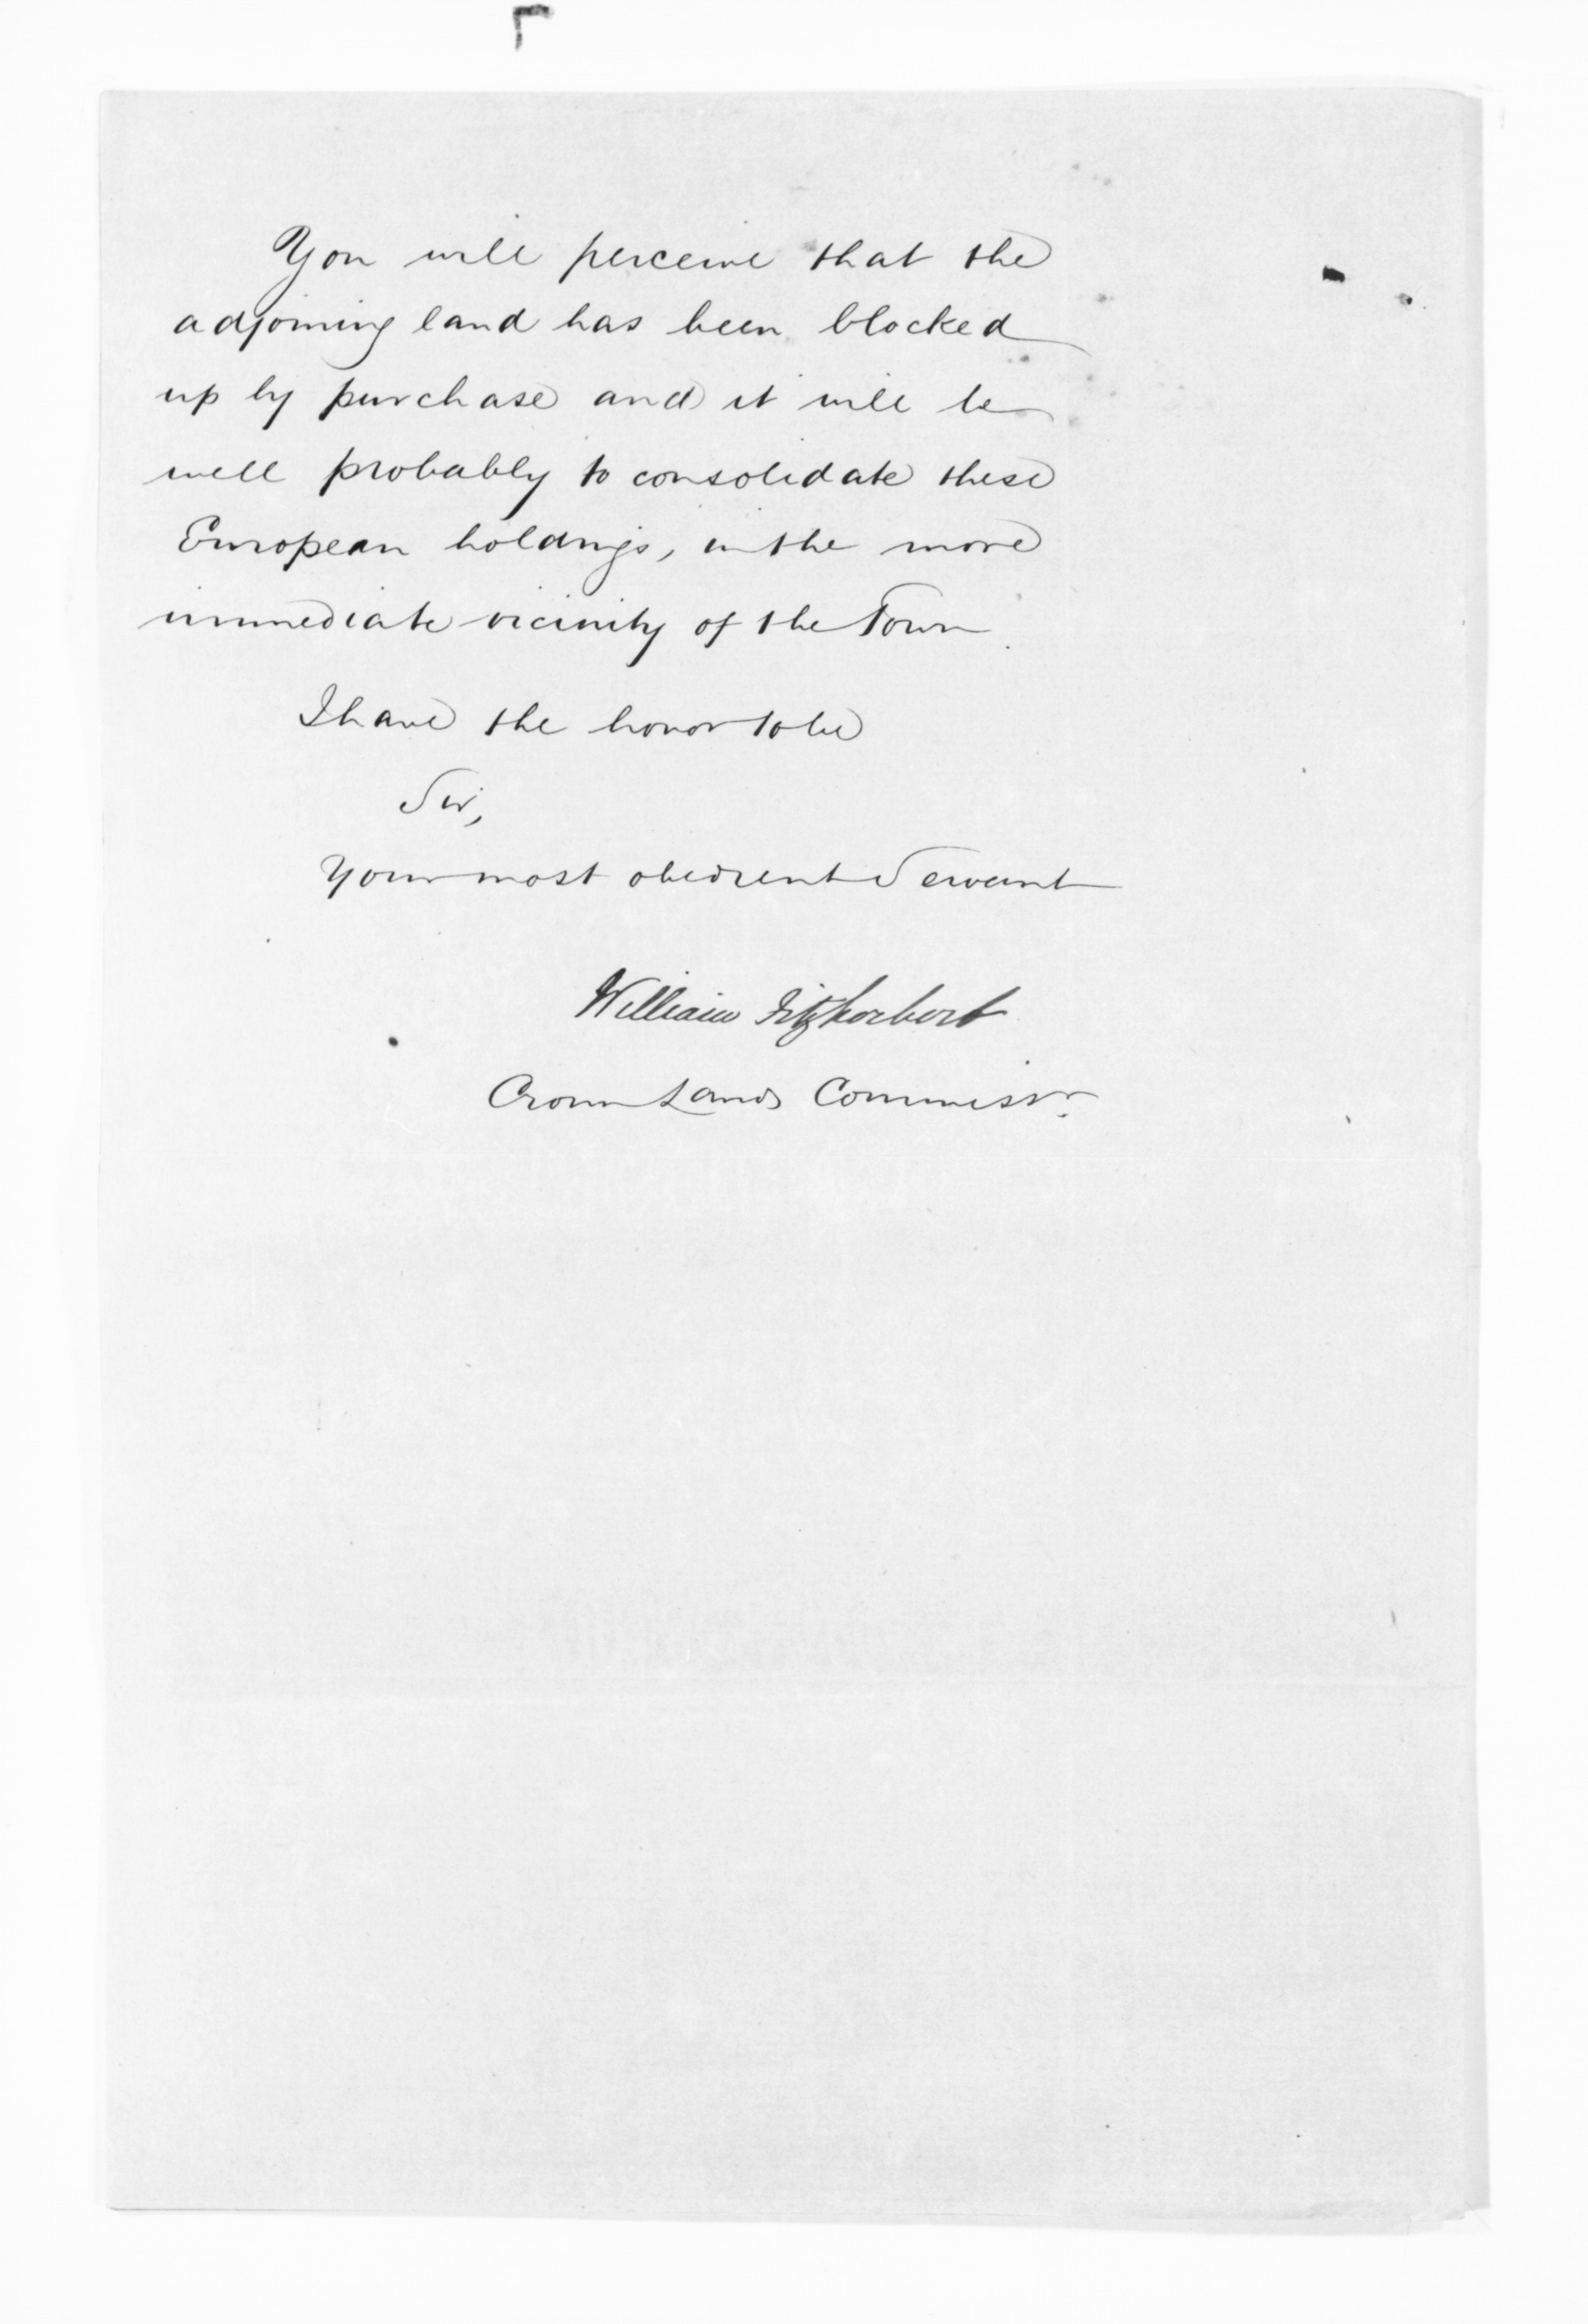 You will perceive that the
adjoining land has been blocked
up by purchase and it will be
well probably to consolidate these
European holdings, in the more
immediate vicinity of the Town.
I have the honor to be
Sir,
Your most obedient Servant
William Fitzherbert
Crown Lands Commissr.